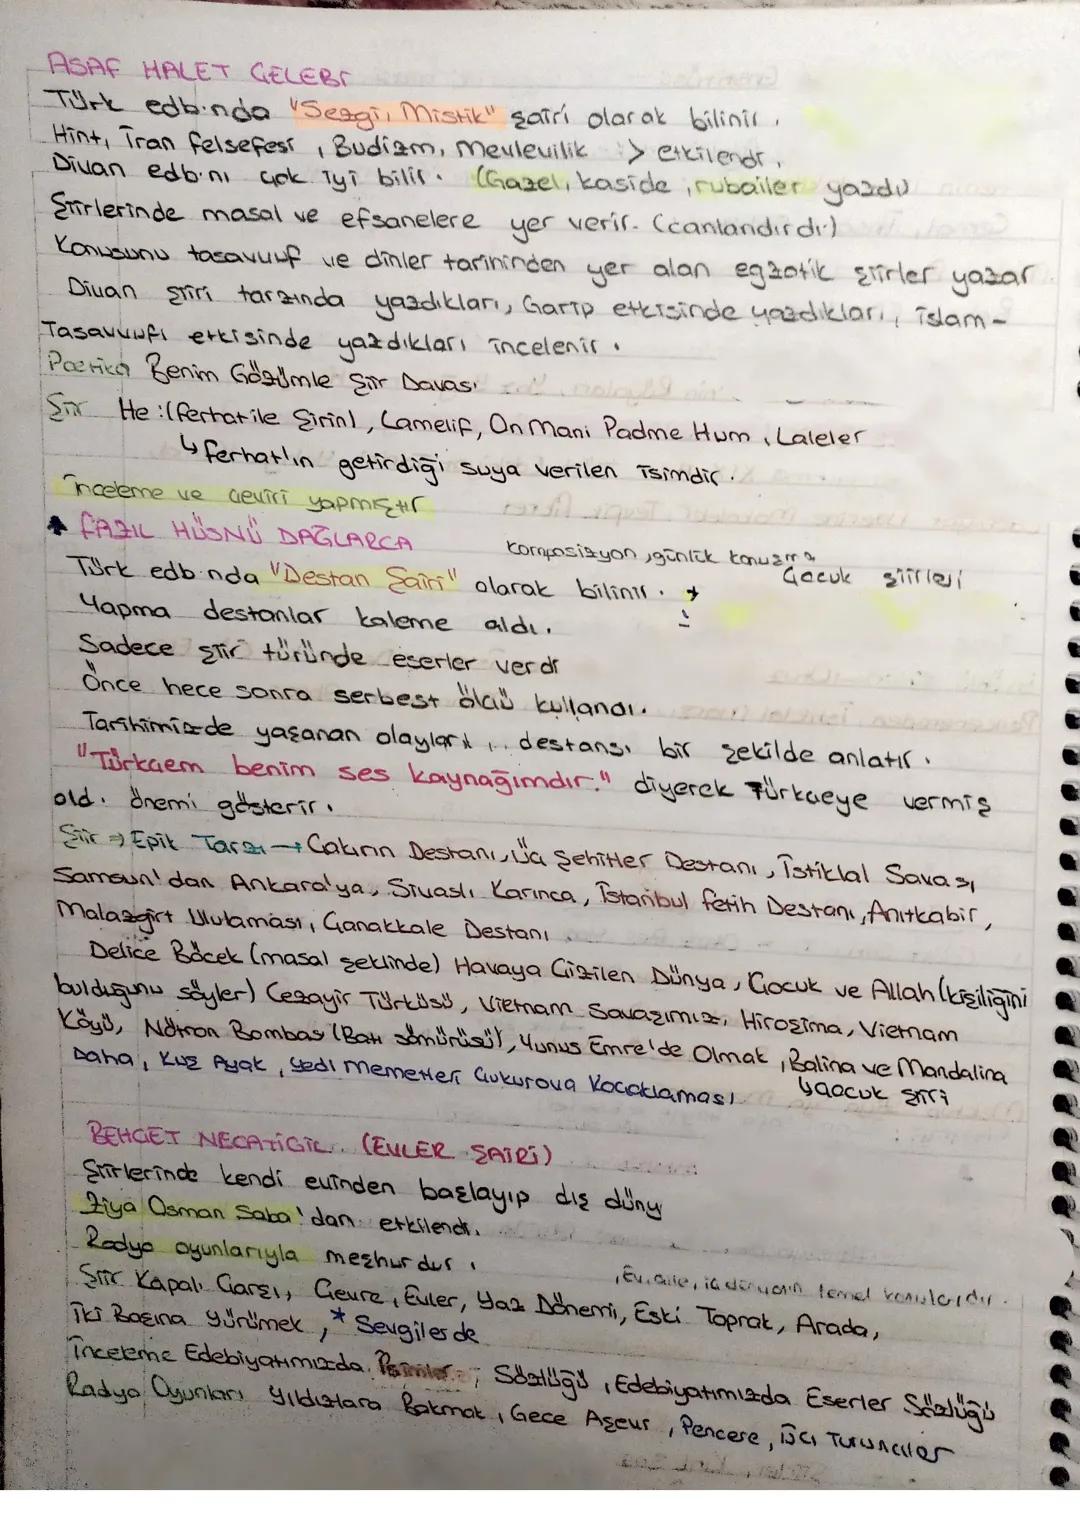 ASAF HALET ÇELEBİ
Türk edb.nda "Sezgi, Mistik" şairi olarak bilinir.
Hint, İran felsefesi, Budizm, Mevlevilik > etkilendi.
Divan edb.nı çok iyi bilir. (Gazel, kaside, rubailer yazdı)
Şiirlerinde masal ve efsanelere yer verir. (canlandırdı)
Konusunu tasavvuf ve dinler tarihinden yer alan egzotik şiirler yazar
Divan şiiri tarzında yazdıkları, Garip etkisinde yazdıkları, İslam-
Tasavvufi etkisinde yazdıkları incelenir.
Poetika Benim Gözümle Şiir Davası
Şiir He: (Ferhat ile Şirin), Lamelif, On Mani Padme Hum, Laleler
↳ Ferhat'ın getirdiği suya verilen isimdir.
İnceleme ve çeviri yapmıştır
FAZIL HÜSNÜ DAĞLARCA
Kompozisyon, günlük konuşma
Çocuk şiirleri
Türk edb nda "Destan Şairi" olarak bilinir.
Yapma destanlar kaleme aldı.
Sadece şiir türünde eserler verdi
Önce hece sonra serbest ölçü kullandı.
Tarihimizde yaşanan olayları, destansı bir şekilde anlatır.
"Türkçem benim ses kaynağımdır." diyerek Türkçeye vermiş
old. önemi gösterir.
Şiir ⇒ Epik Tarzı → Çakırın Destanı, Üç Şehitler Destanı, İstiklal Savaşı,
Samsun'dan Ankara'ya, Sivaslı Karınca, İstanbul Fetih Destanı, Anıtkabir,
Malazgirt Ululaması, Çanakkale Destanı
Delice Böcek (masal şeklinde) Havaya Çizilen Dünya, Çocuk ve Allah (kişiliğini
bulduğunu söyler) Cezayir Türküsü, Vietnam Savaşımız, Hiroşima, Vietnam
Köyü, Nötron Bombas (Batı sömürüsü), Yunus Emre'de Olmak, Balina ve Mandalina
↳ çocuk şiiri
Daha, Kuş Ayak, Yedi Memetler Çukurova Koçaklaması
BEHÇET NECATİGİL. (EVLER ŞAİRİ)
Şiirlerinde kendi evinden başlayıp dış düny
Ziya Osman Saba'dan etkilendi.
Radyo oyunlarıyla meşhurdur.
, Ev, aile, iç dünyanın temel konularıdır.
Şiir Kapalı Çarşı, Çevre, Evler, Yaz Dönemi, Eski Toprak, Arada,
İki Başına Yürümek, * Sevgilerde
İnceleme Edebiyatımızda İsimler Sözlüğü, Edebiyatımızda Eserler Sözlüğü
Radyo Oyunları Yıldızlara Bakmak, Gece Aşevi, Pencere, Üç Turunçlar